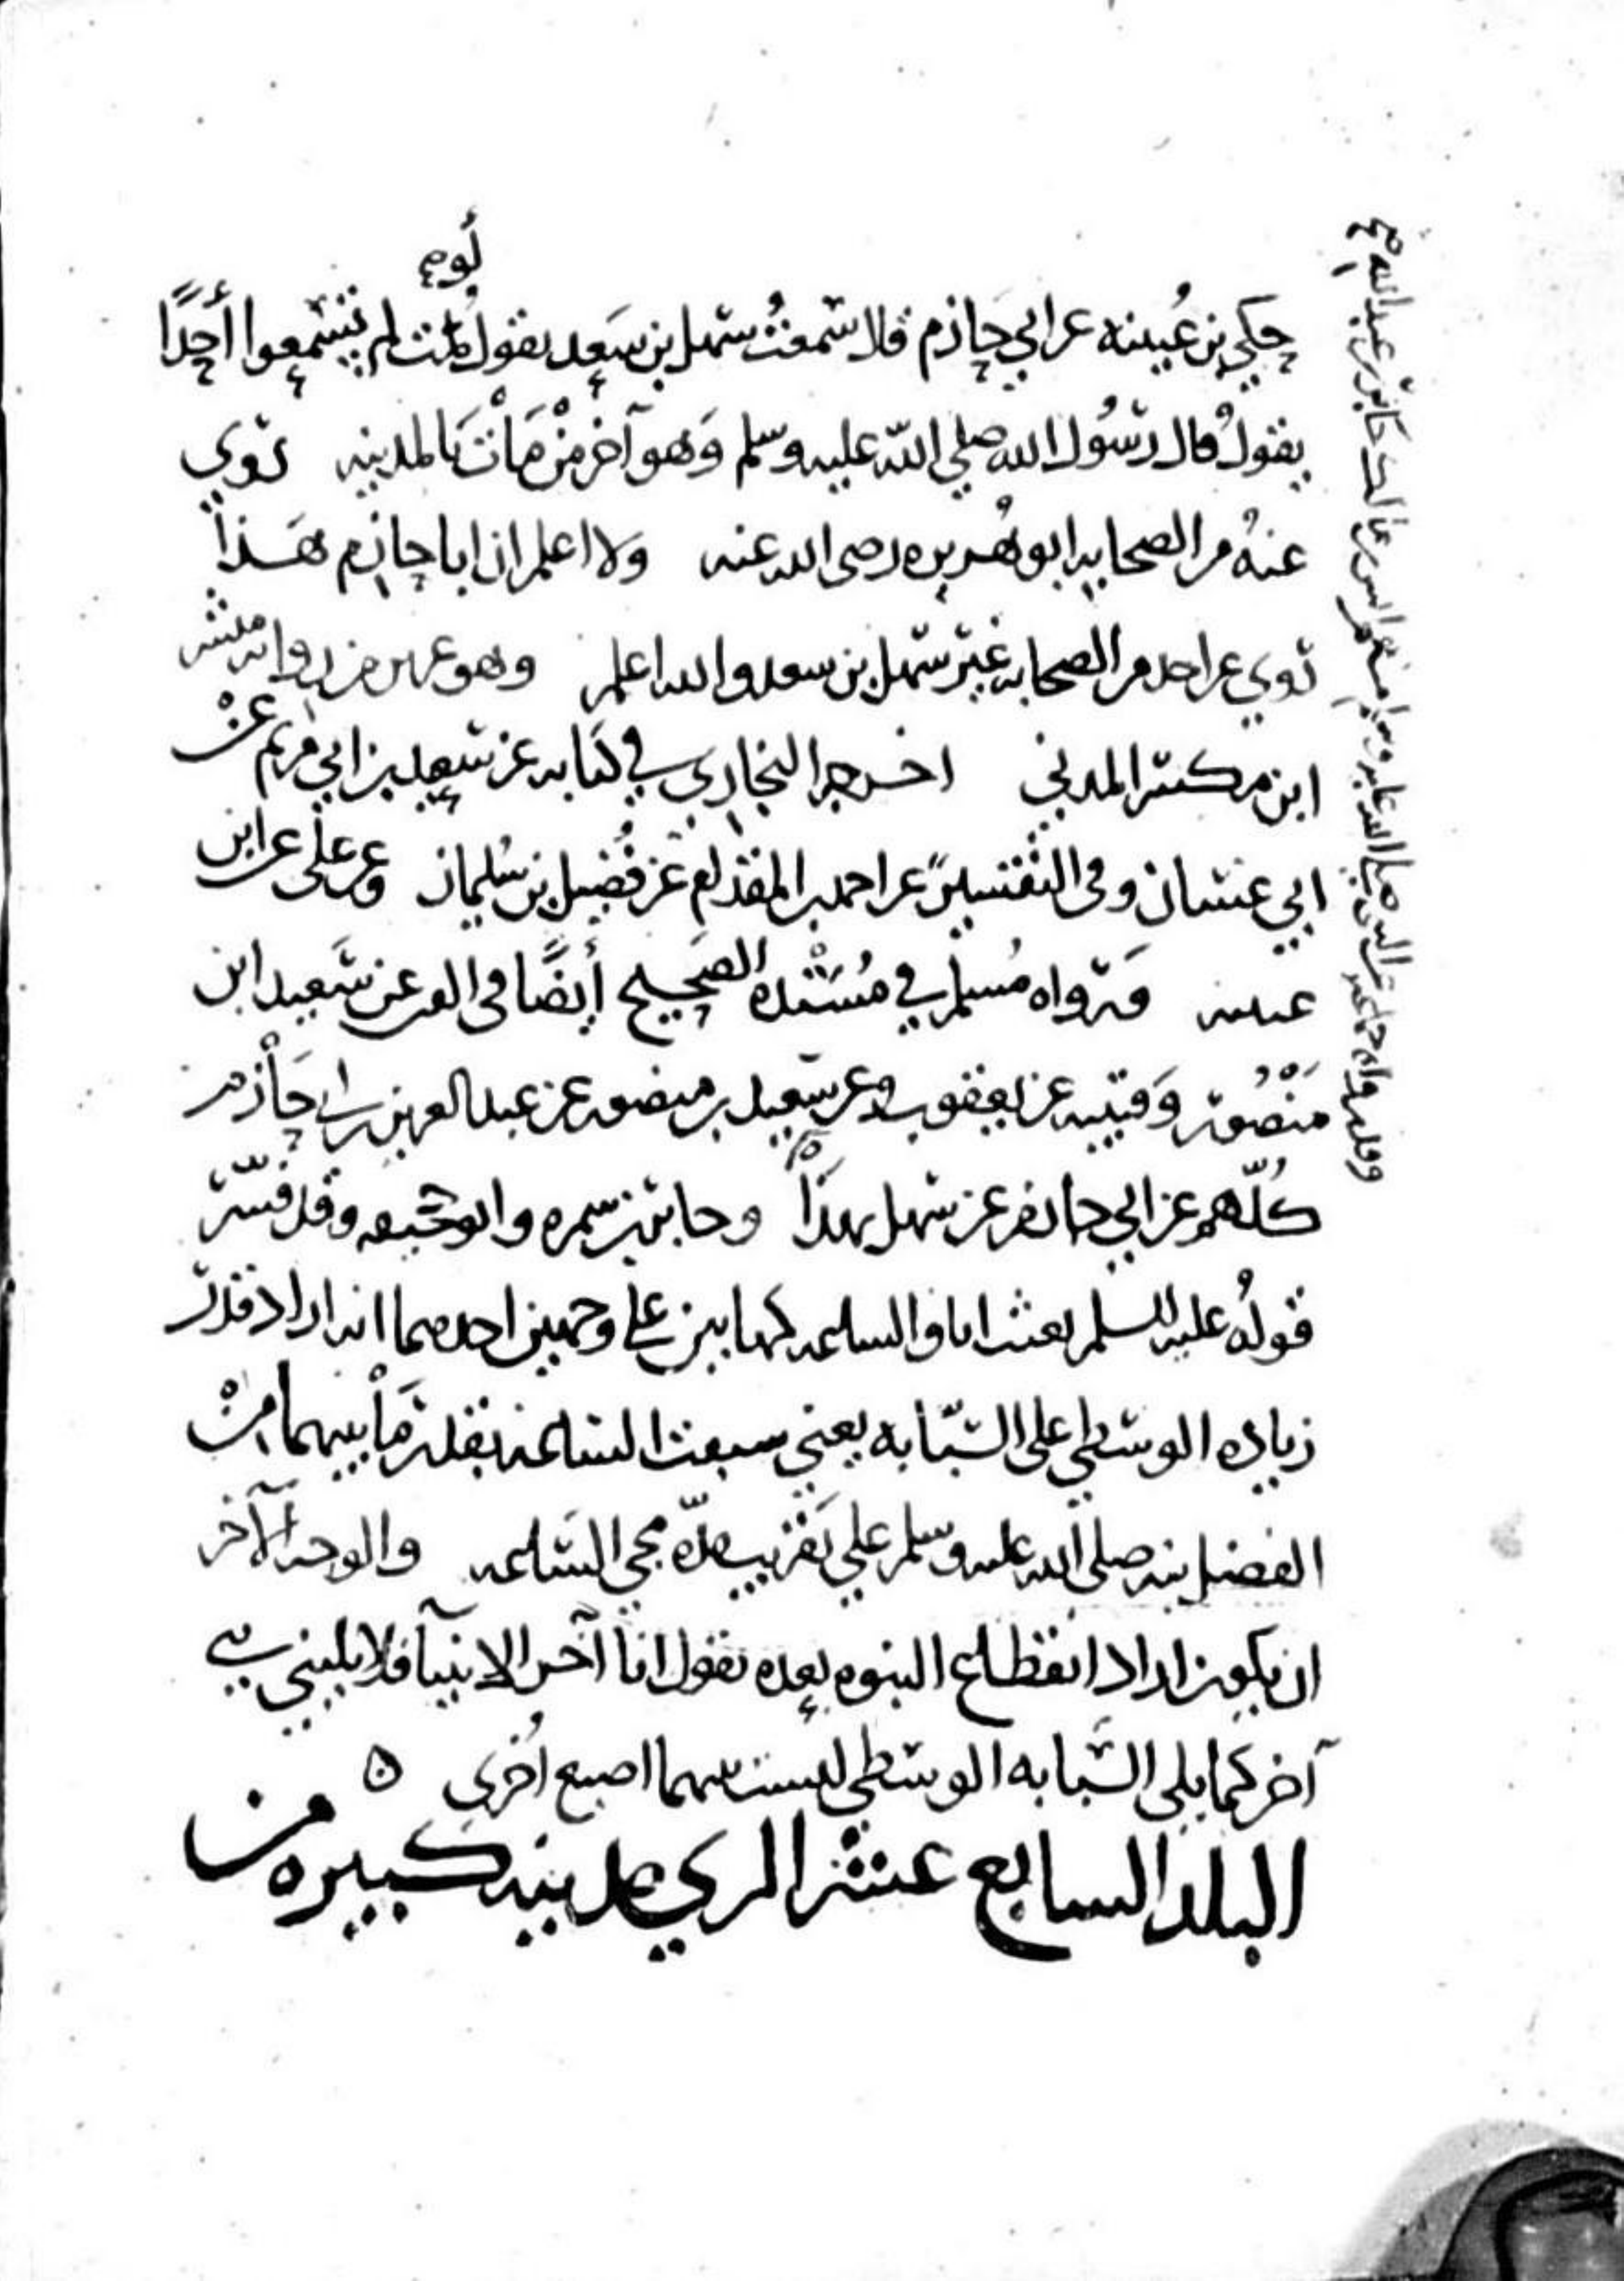 حكى بن عُيينه عن ابي حازم قال سَمعتُ سَهل بن سَعد يقول لو مت لم تسْمعوا أحدًا
يقولُ قال رسُول الله صلي الله عليه وسلم وَهو آخر منْ مَاتَ بالمدينه روي
عنهُ من الصحابه ابو هُريره رضى الله عنه ولا اعلم ان ابا حازم هَذا
روي عن احد من الصحابه غير سَهل بن سعد والله اعلم وهو عزيز من رواية
ابن المدني اخرجه البخاري في كتابه عن سَعيد بن ابي مريم عنْ
ابي غسان وفى التفسير عن احمد بن المقدام عن فُضيل بن سُليمان وعن علي عن ابن
عيينه وَرواه مُسلم في مُسْنده الصحيح أيضًا فى عن سَعيد ابن
مَنْصُور وَقتيبه عن يعقوب وعن سَعيد بن منصور عن عبد العزيز بن ابي حَازم
كُلّهم عن ابي حازم عن سَهل بهذا وجابر بن سمره وابو جحيفه وقد فسّر
قولهُ عليه السلم بعثت انا والساعه كهاتين على وجهين احدهما انه اراد قدر
زياده الوسْطي على السّبّابه يعني سبقت السّاعه بقدر مَا بينهما من
الفضل بينه صلى الله عليه وسلم علي تقريب مدّة مجي السَّاعه والوجه الآخر
ان يكون اراد انقطاع النبوه بعده يقول انا آخر الانبيآ فلا يليني نبي
آخر كما يلى السَّبابه الوسْطي ليست بينهما اصبع اُخرى ه
البلد السابع عشر الري مدينه كبيره من